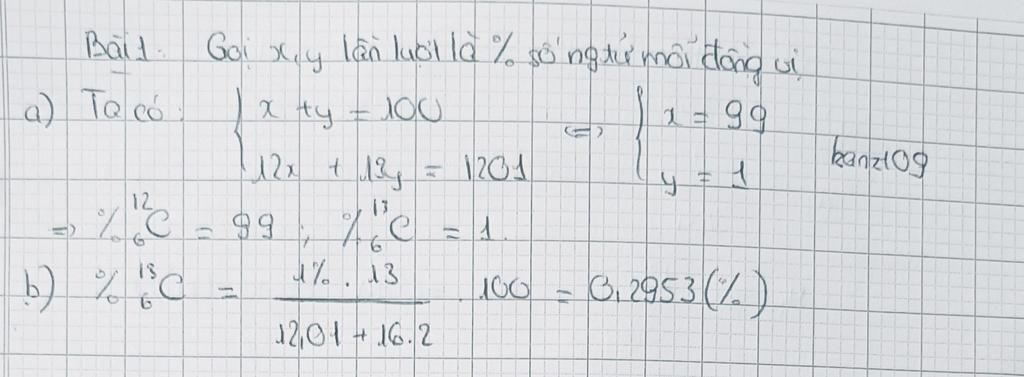 Bài 1. Gọi x, y lần lượt là % số ngtử mỗi đồng vị
a) Ta có: { x + y = 100 <=> { x = 99
12x + 13y = 1201 y = 1 banz109
=> % ¹²₆C = 99 ; % ¹³₆C = 1.
b) % ¹³₆C = (1% . 13) / (12,01 + 16.2) . 100 = 0,2953 (%)